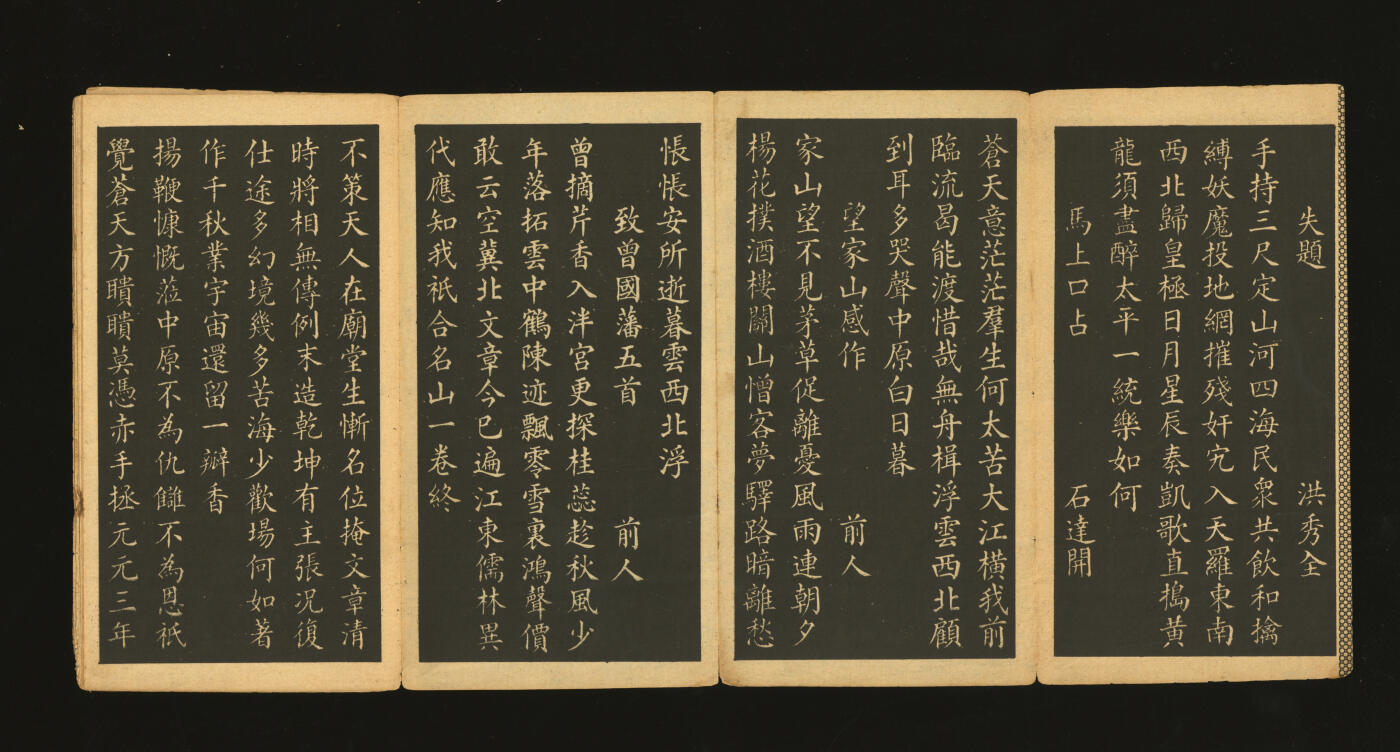 失題 洪秀全
手持三尺定山河四海民眾共飲和擒
縛妖魔投地網摧殘奸宄入天羅東南
西北歸皇極日月星辰奏凱歌直搗黃
龍須盡醉太平一統樂如何
馬上口占 石達開
蒼天意茫茫羣生何太苦大江橫我前
臨流曷能渡惜哉無舟楫浮雲西北顧
到耳多哭聲中原白日暮
望家山感作 前人
家山望不見茅草促離憂風雨連朝夕
楊花撲酒樓關山憎客夢驛路暗離愁
悵悵安所逝暮雲西北浮
致曾國藩五首 前人
曾摘芹香入泮宮更探桂蕊趁秋風少
年落拓雲中鶴陳迹飄零雪裏鴻聲價
敢云空冀北文章今已遍江東儒林異
代應知我祇合名山一卷終
不策天人在廟堂生慚名位掩文章清
時將相無傳例末造乾坤有主張況復
仕途多幻境幾多苦海少歡場何如著
作千秋業宇宙還留一瓣香
揚鞭慷慨蒞中原不為仇讎不為恩祇
覺蒼天方瞶瞶莫憑赤手拯元元三年